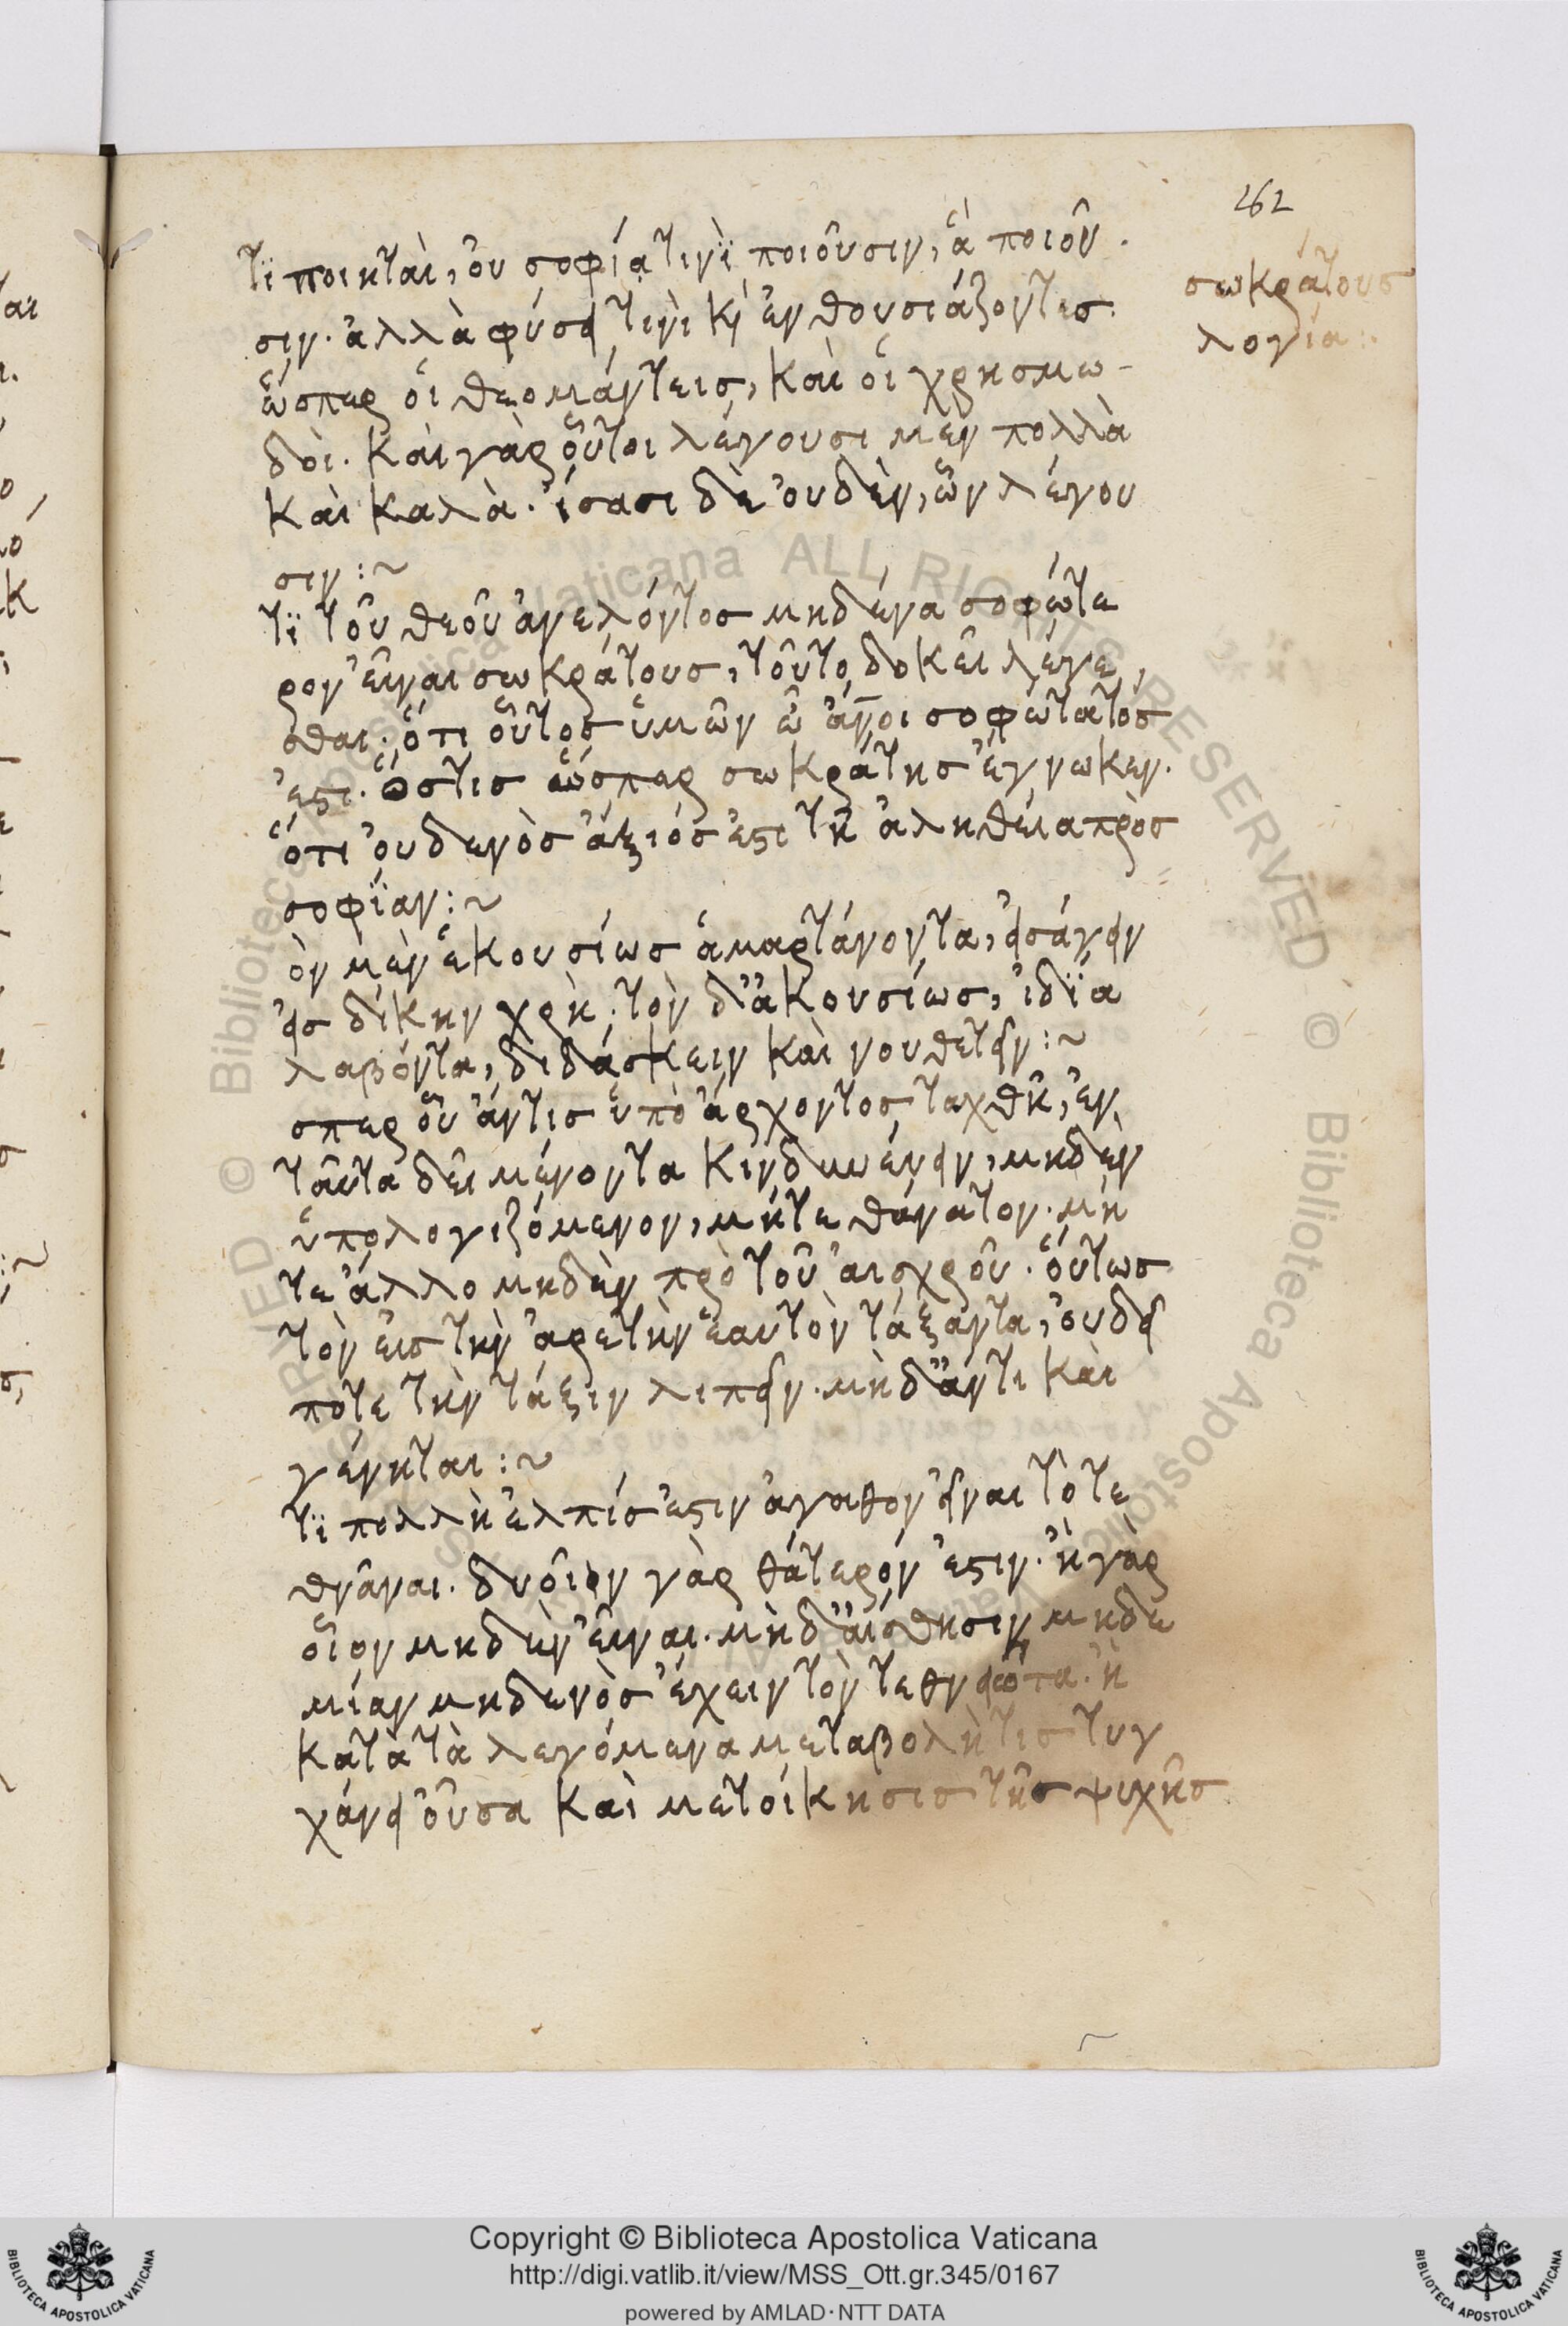 262
σωκράτους
λογία:
τϊ ποιηταὶ, ὀυ σοφία τινὶ ποιοῦσιν, ἃ ποιοῦ
σιν. ἀλλὰ φύσει τινὶ κỳ ἐνθουσιάζοντες.
ὥσπερ ὁι θεομάντεις, καὶ ὁι χρησμω-
δὸι. καὶ γὰρ ὁῦτοι λέγουσι μὲν πολλὰ
καὶ καλὰ. ἴσασι δὲ ὀυδὲν, ὧν λέγου
σιν:~
τϊ τοῦ θεοῦ ἀνελόντος μηδένα σοφώτε
ρον εἶναι σωκράτους, τοῦτο δοκεῖ λέγε
σθαι. ὅτι ὁῦτος ὑμῶν ὦ ἄνοι σοφώτατός
ἐστι. ὅστις ὥσπερ σωκράτης ἔγνωκεν.
ὅτι ὀυδενὸς ἄξιός ἐστι τῆ ἀληθεία πρὸς
σοφίαν:~
ὸν μὲν ἑκουσίως ἁμαρτάνοντα, εἰσάγειν
εἰς δίκην χρὴ. τὸν δ' ἀκουσίως, ἰδία
λαβόντα, διδάσκειν καὶ νουθετεῖν:~
σπερ ὁῦ ἄντις ὑπὸ ἄρχοντος ταχθῆ, ἐν
ταῦτα δεῖ μένοντα κινδυνεύειν, μηδὲν
ὑπολογιζόμενον, μήτε θάνατον. μή
τε ἄλλο μηδὲν πρὸ τοῦ ἀισχροῦ. ὅυτως
τὸν ἐις τὴν ἀρετὴν ἑαυτὸν τάξαντα, ὀυδέ
ποτε τὴν τάξιν λιπεῖν. μὴδ' ἄντι καὶ
γένηται:~
τϊ πολλὴ ἐλπίς ἐστιν ἀγαθον εἶναι τὸ τε
θνᾶναι. δυοῖν γὰρ θάτερόν ἐστιν. ἢ γὰρ
οἷον μηδὲν εἶναι. μὴδ' ἄισθησιν μηδε
μίαν μηδενὸς ἔχειν τὸν τεθνεῶτα. ἢ
κατὰ τὰ λεγόμενα μεταβολή τις τυγ
χάνει ὀῦσα καὶ μετοίκησις τῆς ψυχῆς
© Biblioteca Apostolica Vaticana ALL RIGHTS RESERVED
Copyright © Biblioteca Apostolica Vaticana
http://digi.vatlib.it/view/MSS_Ott.gr.345/0167
powered by AMLAD·NTT DATA
BIBLIOTECA APOSTOLICA VATICANA
BIBLIOTECA APOSTOLICA VATICANA